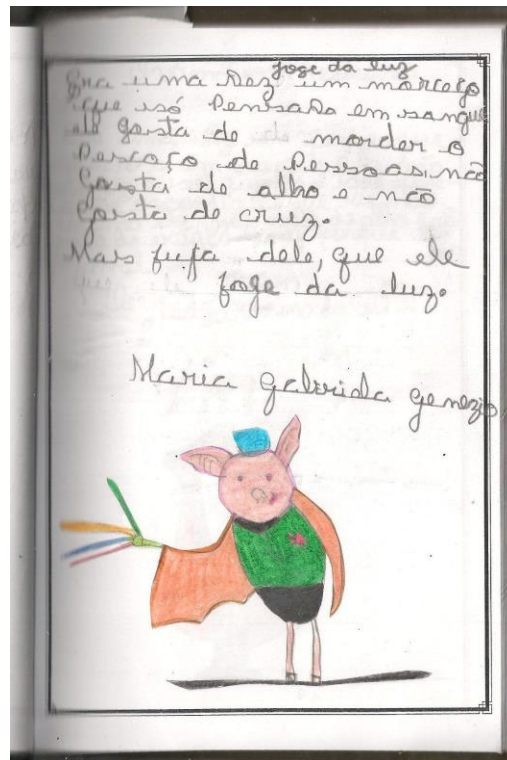 foge da luz
Era uma vez um morcego
que só pensava em sangue
ele gosta de morder o
pescoço de pessoas, não
gosta de alho e não
gosta de cruz.
Mas fufa dele, que ele
foge da luz.
Maria Gabriela Genezio